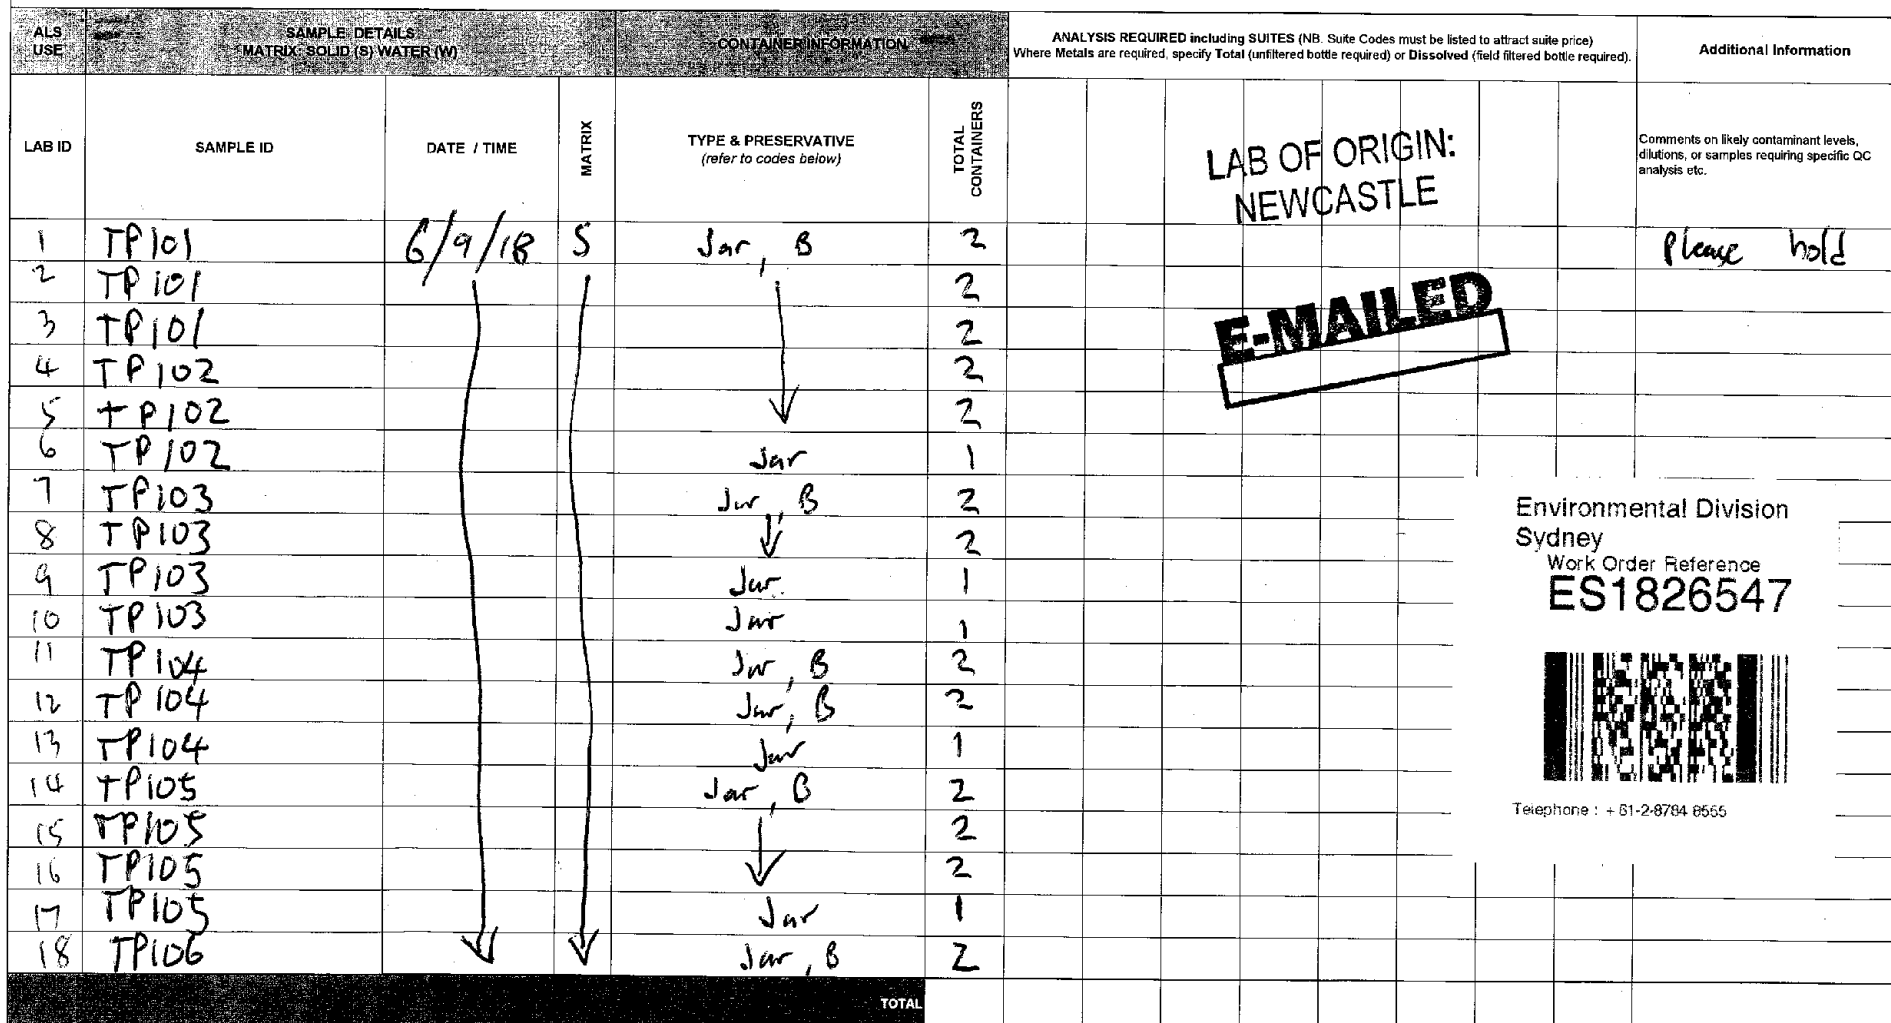 ALS USE
SAMPLE DETAILS
MATRIX: SOLID (S) WATER (W)
CONTAINER INFORMATION
ANALYSIS REQUIRED including SUITES (NB. Suite Codes must be listed to attract suite price)
Where Metals are required, specify Total (unfiltered bottle required) or Dissolved (field filtered bottle required).
Additional Information
LAB ID
SAMPLE ID
DATE / TIME
MATRIX
TYPE & PRESERVATIVE
(refer to codes below)
TOTAL CONTAINERS
LAB OF ORIGIN:
NEWCASTLE
Comments on likely contaminant levels,
dilutions, or samples requiring specific QC
analysis etc.
1 TP101 6/9/18 S Jar, B 2 Please hold
2 TP101 2
3 TP101 2
E-MAILED
4 TP102 2
5 TP102 2
6 TP102 Jar 1
7 TP103 Jar, B 2
8 TP103 2
9 TP103 Jar 1
10 TP103 Jar 1
11 TP104 Jar, B 2
12 TP104 Jar, B 2
13 TP104 Jar 1
14 TP105 Jar, B 2
15 TP105 2
16 TP105 2
17 TP105 Jar 1
18 TP106 Jar, B 2
Environmental Division
Sydney
Work Order Reference
ES1826547
Telephone : + 61-2-8784 8555
TOTAL